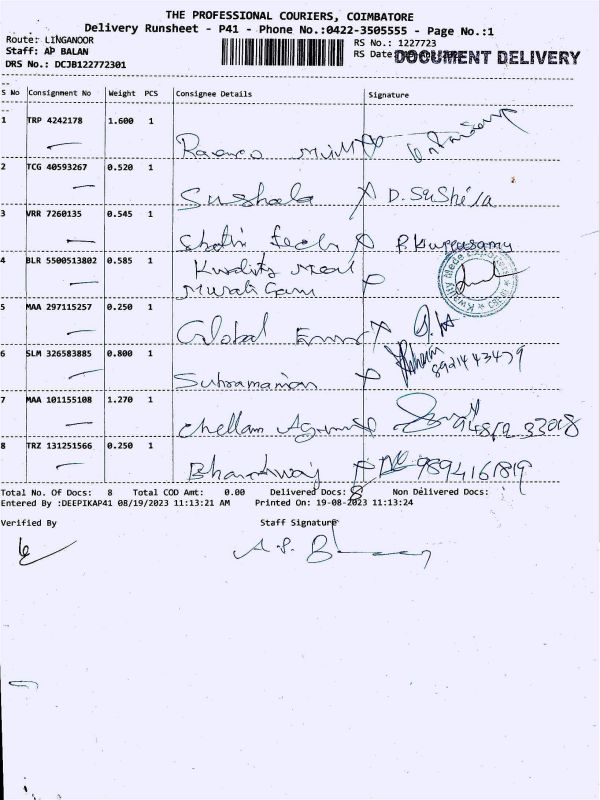 THE PROFESSIONAL COURIERS, COIMBATORE
Delivery Runsheet - P41 - Phone No.:0422-3505555 - Page No.:1
Route: LINGANOOR
RS No.: 1227723
Staff: AP BALAN
RS Date
DOCUMENT DELIVERY
DRS No.: DCJB122772301
S No Consignment No Weight PCS Consignee Details Signature
1 TRP 4242178 1.600 1
2 TCG 40593267 0.520 1
Sushala D. SuShila
3 VRR 7260135 0.545 1
Tech P. Kuppusamy
4 BLR 5500513802 0.585 1
5 MAA 297115257 0.250 1
Global
6 SLM 326583885 0.800 1
Subramanian 8921443479
7 MAA 101155108 1.270 1
Chellam
8 TRZ 131251566 0.250 1
Bharathwaj 9894161819
Total No. Of Docs: 8 Total COD Amt: 0.00 Delivered Docs: 8 Non Delivered Docs:
Entered By :DEEPIKAP41 08/19/2023 11:13:21 AM Printed On: 19-08-2023 11:13:24
Verified By Staff Signature